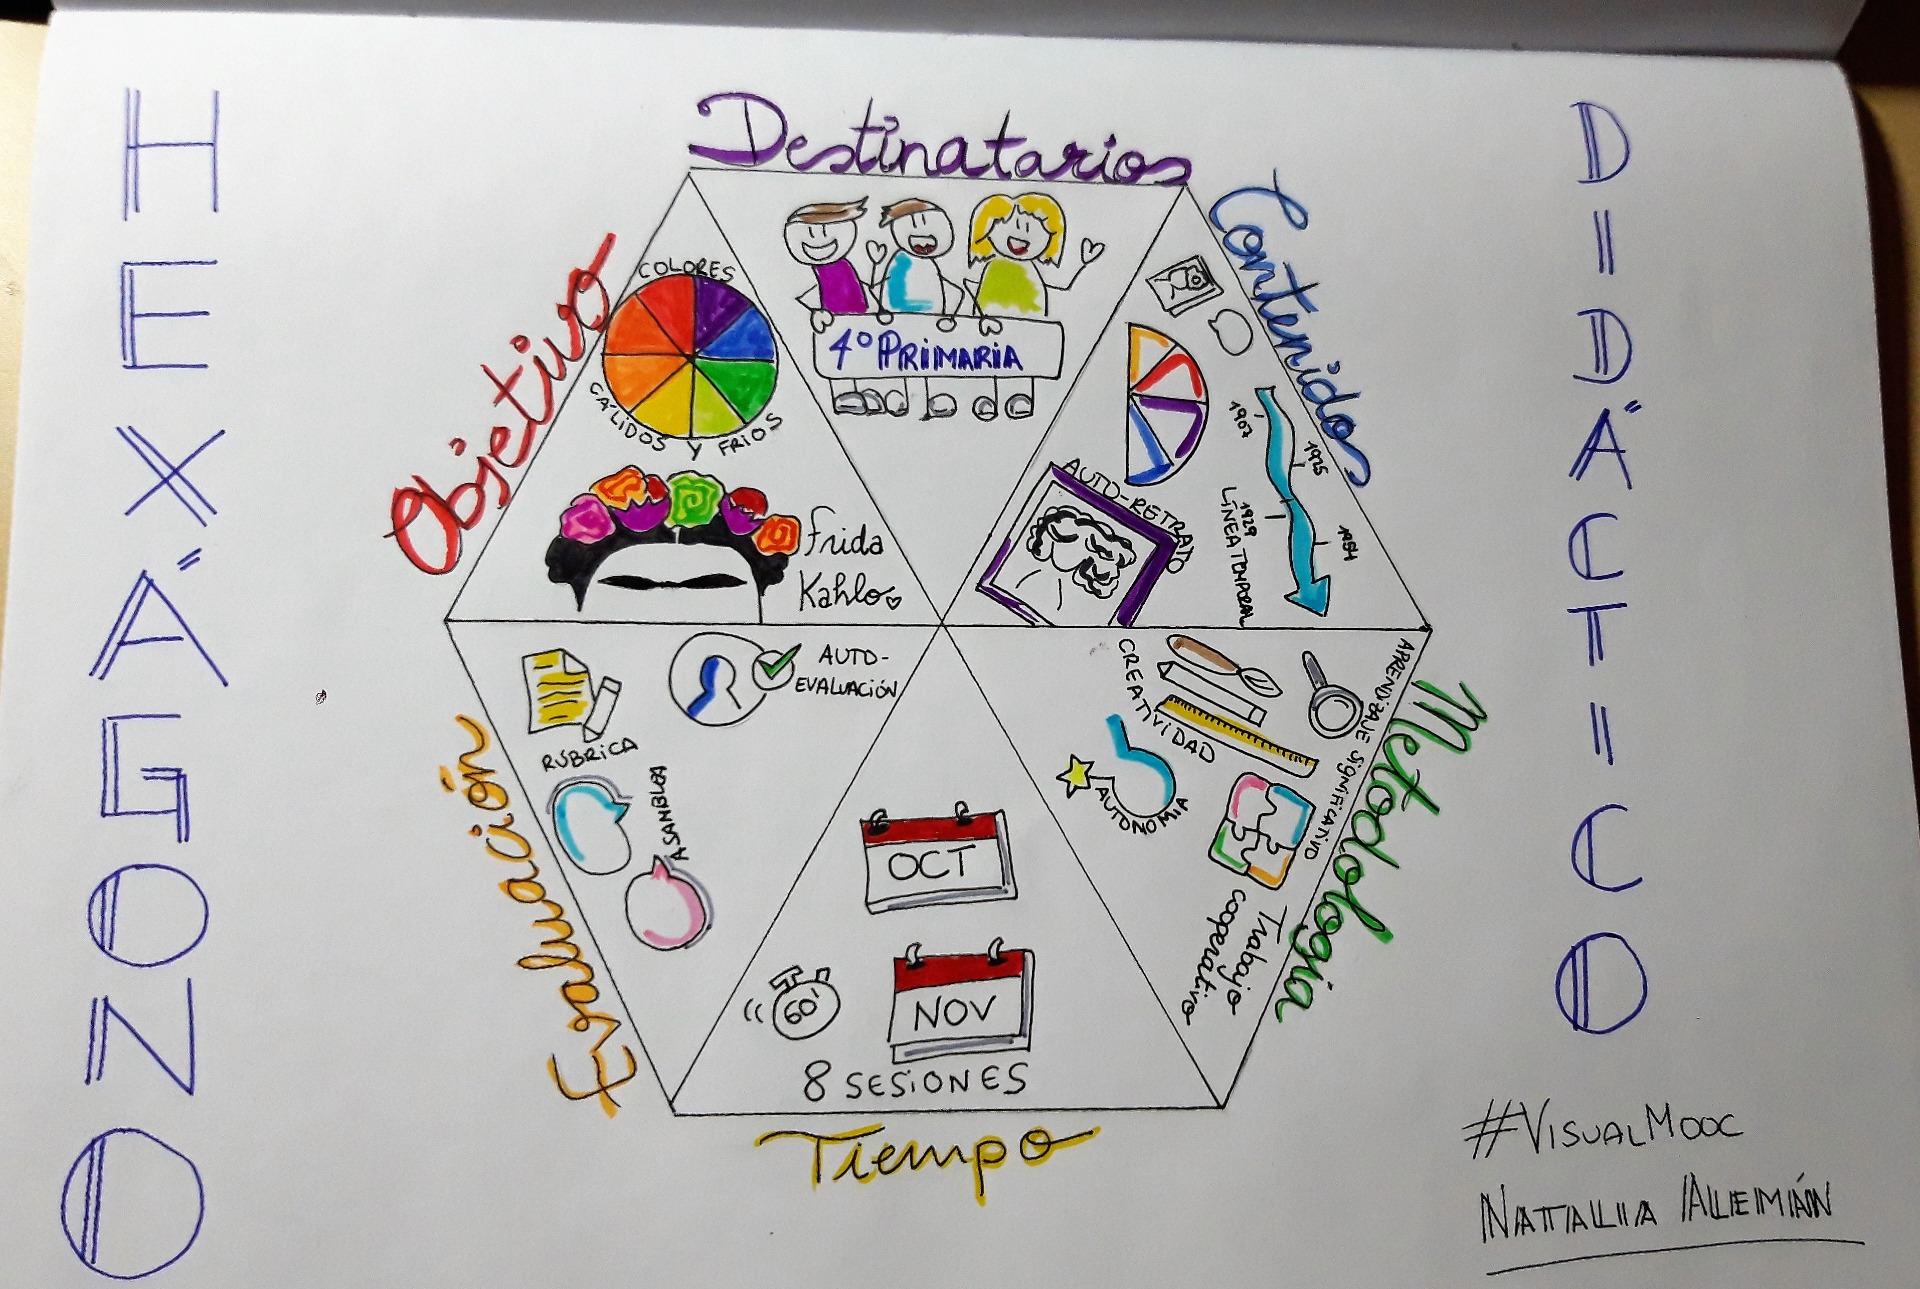 HEXÁGONO
DIDÁCTICO
Destinatarios
4º PRIMARIA
Contenidos
AUTO-RETRATO
1907
1925
1929
1954
LÍNEA TEMPORAL
Metodología
CREATIVIDAD
APRENDIZAJE SIGNIFICATIVO
AUTONOMIA
Trabajo
cooperativo
Tiempo
OCT
NOV
60'
8 SESIONES
Evaluación
AUTO-
EVALUACIÓN
RÚBRICA
ASANBLEA
Objetivo
COLORES
CÁLIDOS Y FRIOS
Frida
Kahlo
#VISUALMOOC
NATALIA ALEMÁN